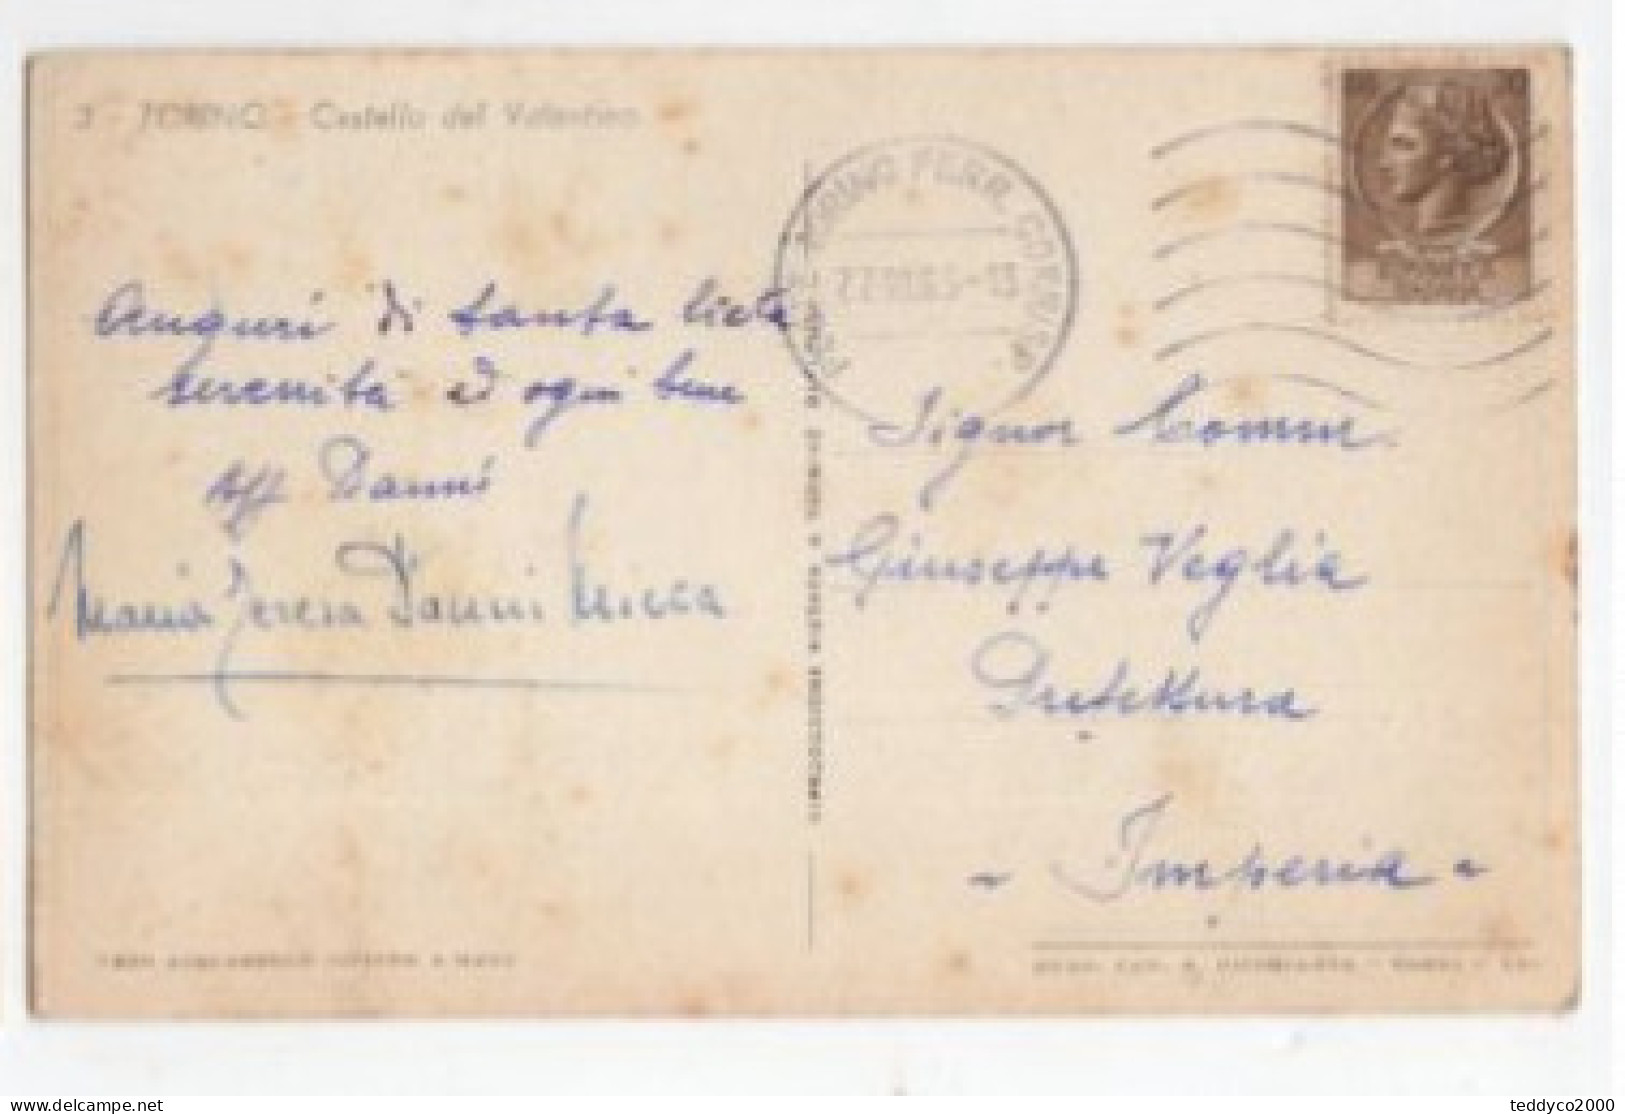 3 - TORINO - Castello del Valentino
Auguri di tanta lieta
serenità ed ogni bene
aff Danni
Maria Teresa Danni Micca
TORINO FERR. CORRISP.
Signor Comm.
Giuseppe Veglia
Prefettura
- Imperia -
RIPRODUZIONE VIETATA
delcampe.net
teddyco2000